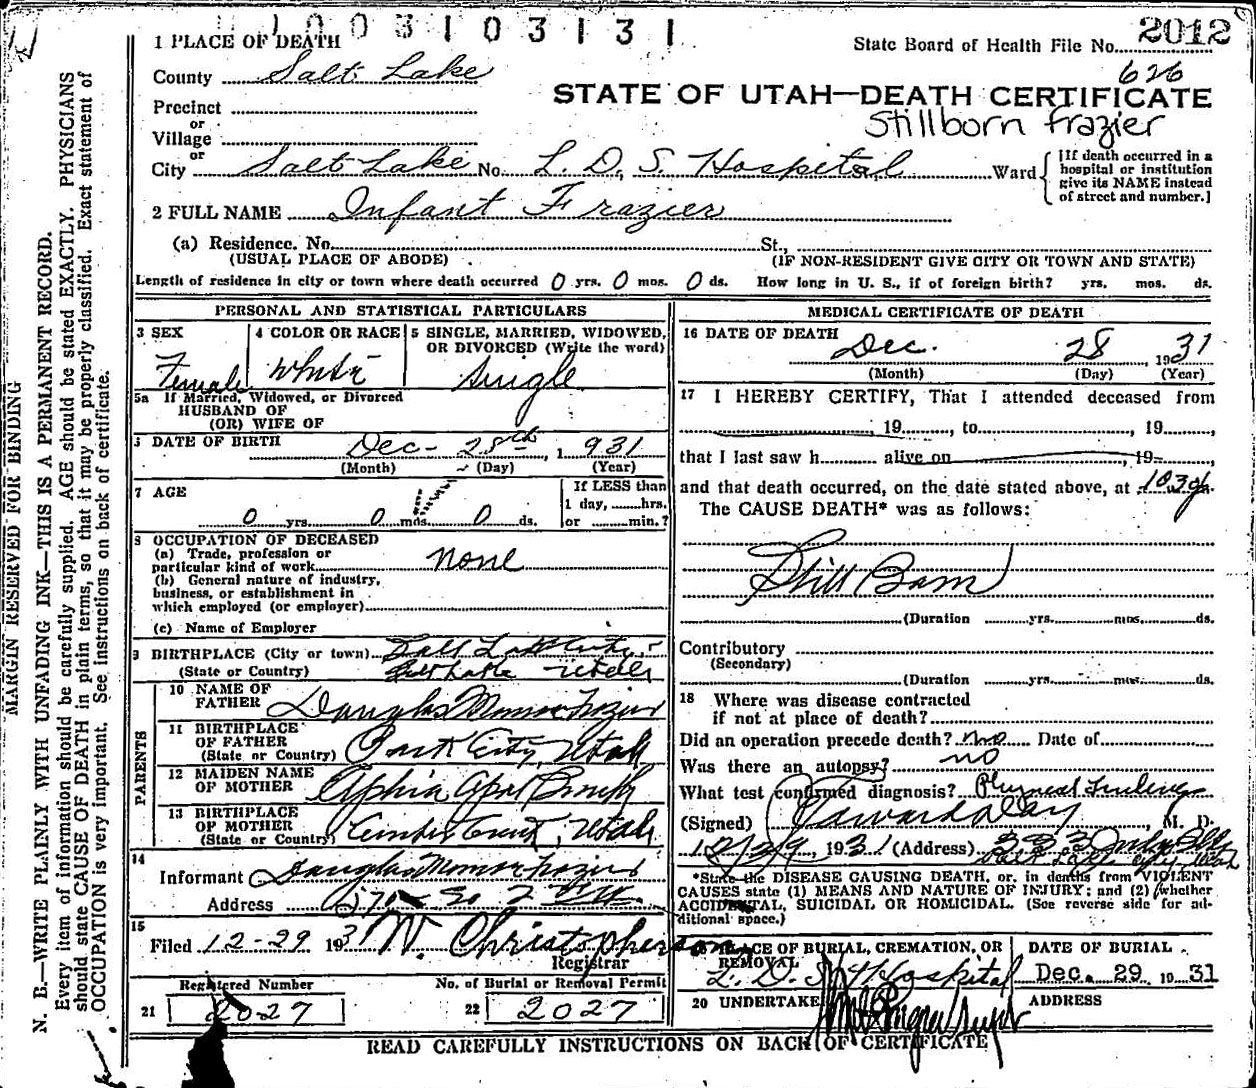 1003103131
2012
State Board of Health File No.
626
1 PLACE OF DEATH
County Salt Lake
STATE OF UTAH—DEATH CERTIFICATE
Stillborn Frazier
Precinct
or
Village
or
City Salt Lake No. L. D. S. Hospital Ward
[If death occurred in a
hospital or institution
give its NAME instead
of street and number.]
2 FULL NAME Infant Frazier
(a) Residence. No. St.,
(USUAL PLACE OF ABODE) (IF NON-RESIDENT GIVE CITY OR TOWN AND STATE)
Length of residence in city or town where death occurred 0 yrs. 0 mos. 0 ds. How long in U. S., if of foreign birth? yrs. mos. ds.
PERSONAL AND STATISTICAL PARTICULARS
3 SEX
Female
4 COLOR OR RACE
White
5 SINGLE, MARRIED, WIDOWED,
OR DIVORCED (Write the word)
Single
5a If Married, Widowed, or Divorced
HUSBAND OF
(OR) WIFE OF
DATE OF BIRTH Dec- 28th, 1931
(Month) (Day) (Year)
7 AGE
0 yrs. 0 mos. 0 ds.
If LESS than
1 day, hrs.
or min.?
8 OCCUPATION OF DECEASED
(a) Trade, profession or
particular kind of work none
(b) General nature of industry,
business, or establishment in
which employed (or employer)
(c) Name of Employer
9 BIRTHPLACE (City or town) Salt Lake City
(State or Country) Salt Lake Utah
PARENTS
10 NAME OF
FATHER Douglas Frazier
11 BIRTHPLACE
OF FATHER
(State or Country) Park City, Utah
12 MAIDEN NAME
OF MOTHER
13 BIRTHPLACE
OF MOTHER
(State or Country) Utah
14
Informant Douglas Frazier
Address
15
Filed 12-29 1931 W. Christopherson
Registrar
Registered Number
21 2027
No. of Burial or Removal Permit
22 2027
MEDICAL CERTIFICATE OF DEATH
16 DATE OF DEATH Dec. 28, 1931
(Month) (Day) (Year)
17 I HEREBY CERTIFY, That I attended deceased from
, 19 , to , 19 ,
that I last saw h alive on 19 ,
and that death occurred, on the date stated above, at
The CAUSE DEATH* was as follows:
Still Born
(Duration yrs. mos. ds.
Contributory
(Secondary)
(Duration yrs. mos. ds.
18 Where was disease contracted
if not at place of death?
Did an operation precede death? no Date of
Was there an autopsy? no
What test confirmed diagnosis? Physical Findings
(Signed) , M. D.
, 1931 (Address) 333
Salt Lake City Utah
*State the DISEASE CAUSING DEATH, or, in deaths from VIOLENT
CAUSES state (1) MEANS AND NATURE OF INJURY; and (2) whether
ACCIDENTAL, SUICIDAL OR HOMICIDAL. (See reverse side for ad-
ditional space.)
PLACE OF BURIAL, CREMATION, OR
REMOVAL
L. D. S. Hospital
DATE OF BURIAL
Dec. 29 1931
20 UNDERTAKER
ADDRESS
READ CAREFULLY INSTRUCTIONS ON BACK OF CERTIFICATE
MARGIN RESERVED FOR BINDING
N. B.—WRITE PLAINLY WITH UNFADING INK—THIS IS A PERMANENT RECORD.
Every item of information should be carefully supplied. AGE should be stated EXACTLY. PHYSICIANS
should state CAUSE OF DEATH in plain terms, so that it may be properly classified. Exact statement of
OCCUPATION is very important. See instructions on back of certificate.